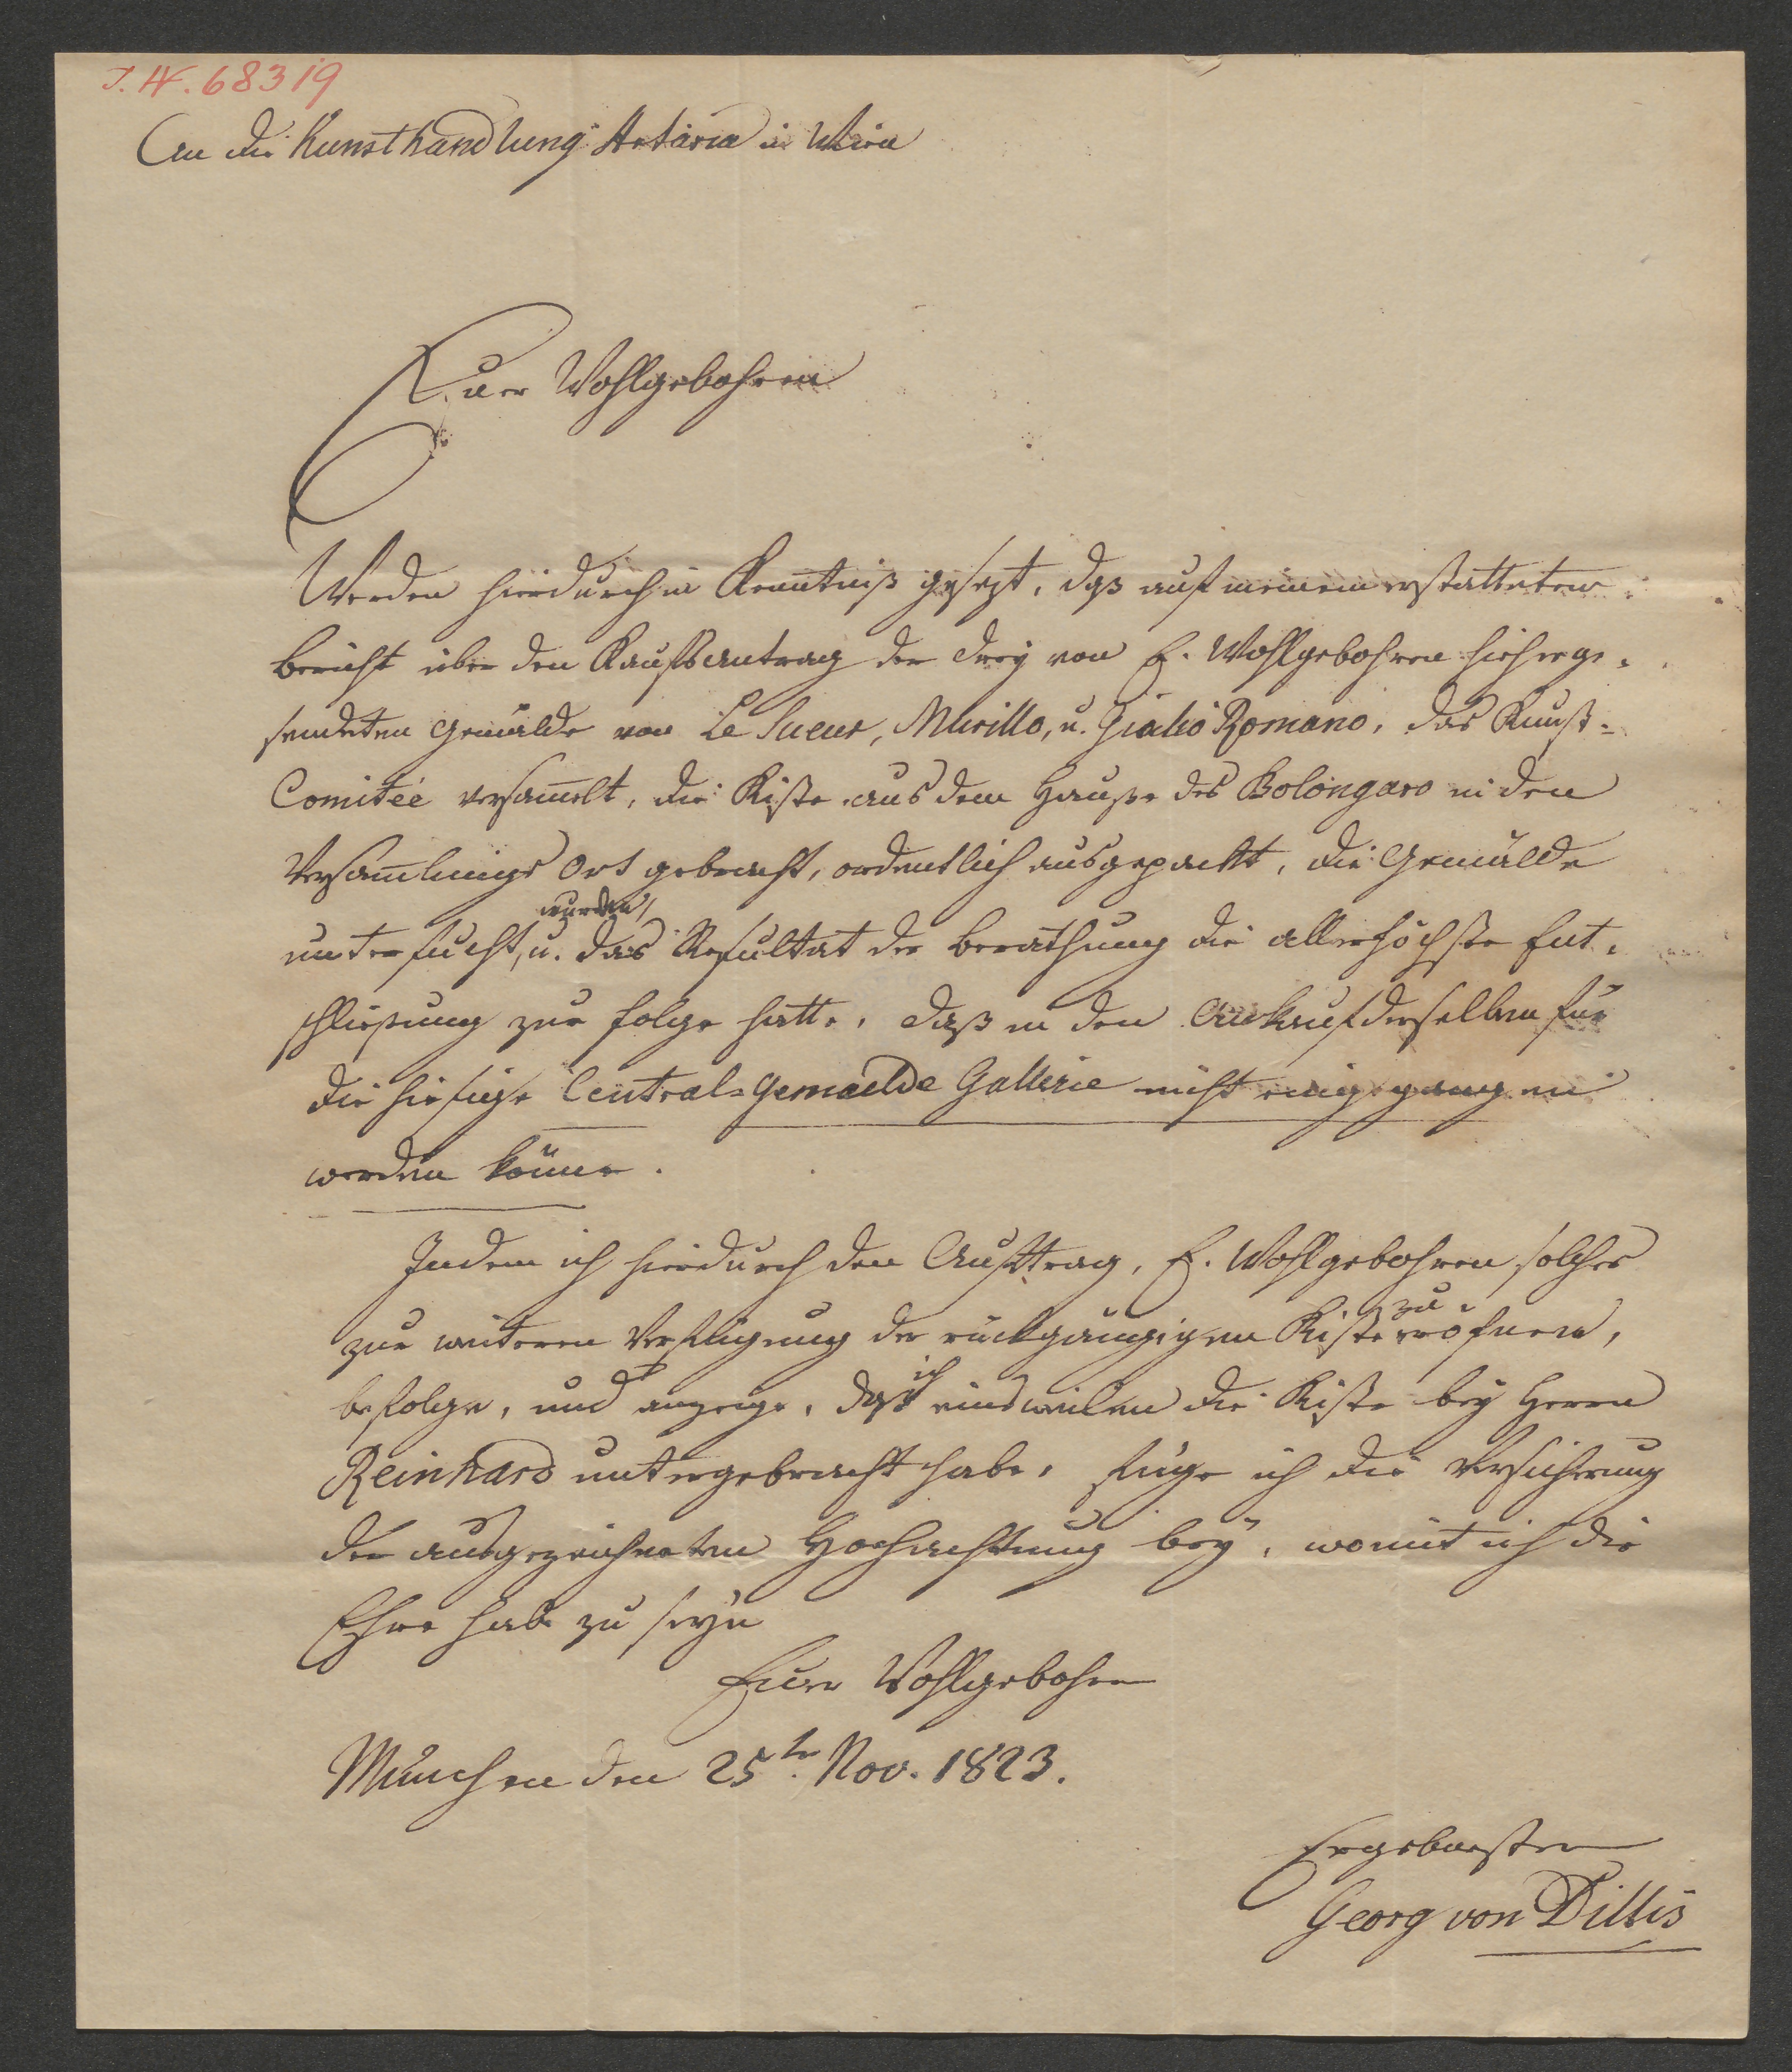 J. N. 68319
An die Kunsthandlung Artaria in Wien
Euer Wohlgebohren
Werden hierdurch in Kenntniß gesezt, daß auf meinem erstatteten
Bericht über den Kaufsantrag der drey von E. Wohlgebohren hieherge-
sendeten Gemälde von Le Sueur, Murillo, u. Giulio Romano, das Kunst-
Comitée versam̅elt, die Kiste aus dem Hauße des Bolongaro in den
Versam̅lungs Ort gebracht, ordentlich ausgepackt, die Gemälde
untersucht, wurden, u. das Resultat der Berathung die allerhöchste Ent-
schließung zur Folge hatte, daß in den Ankauf derselben für
die hiesige Central-Gemaelde Gallerie nicht eingegangen
werden könne.
Indem ich hierdurch den Auftrag, E. Wohlgebohren solches
zur weiteren Verfügung der rückgängigen Kiste zu eröfnen,
befolge, und anzeige, daß ich einsweilen die Kiste bey Herrn
Reinhard untergebracht habe, füge ich die Versicherung
der ausgezeichneten Hochachtung bey, womit ich die
Ehre habe zu seyn
Euer Wohlgebohren
München den 25ten Nov. 1823.
Ergebenster
Georg von Dillis